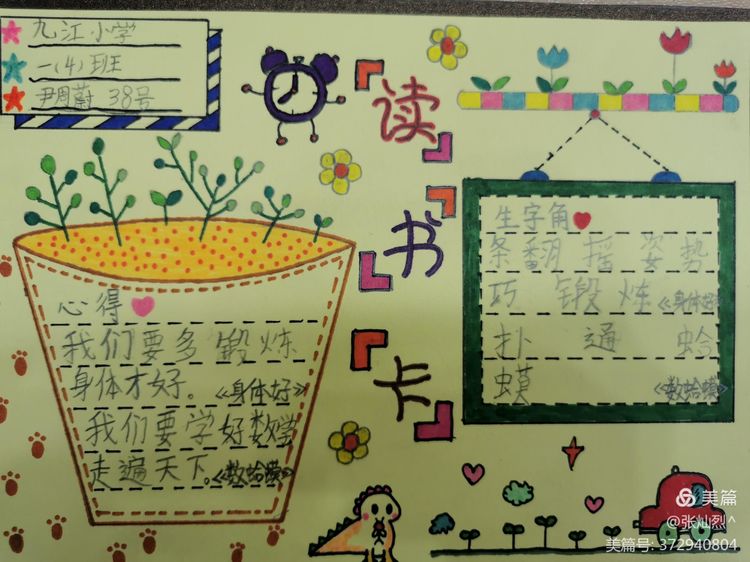 九江小学
一(4)班
尹周蔚 38号
读书卡
心得
我们要多锻炼
身体才好。《身体好》
我们要学好数学
走遍天下。《数蛤蟆》
生字角
条翻摇姿势
巧锻炼《身体好》
扑通蛤
蟆《数蛤蟆》
美篇
@张灿烈^
美篇号: 372940804